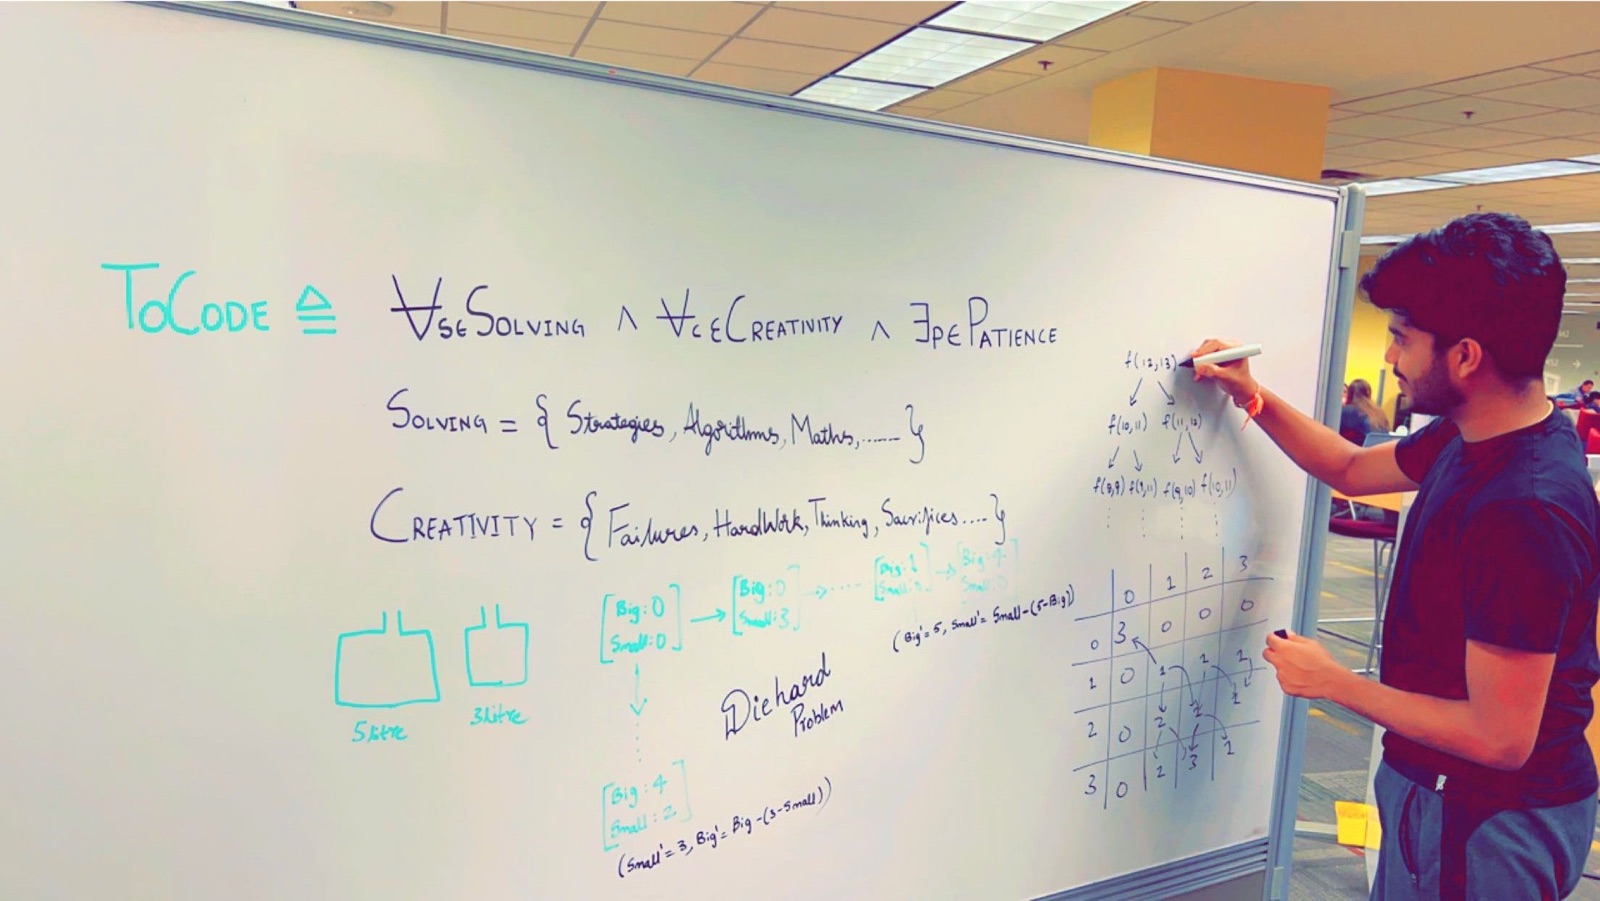 ToCODE ≜ ∀s∈SOLVING ∧ ∀c∈CREATIVITY ∧ ∃p∈PATIENCE
SOLVING = { Strategies, Algorithms, Maths, ...... }
CREATIVITY = { Failures, HardWork, Thinking, Sacrifices .... }
5 litre
3 litre
[Big: 0
Small: 0]
[Big: 0
Small: 3]
[Big: 1
[Big: 4
Small: 0]
(Big' = 5, Small' = Small - (5 - Big))
Diehard
Problem
[Big: 4
Small: 2]
(Small' = 3, Big' = Big - (3 - Small))
f(12,13)
f(10,11) f(11,12)
f(8,9) f(9,11) f(9,10) f(10,11)
0 1 2 3
0 3 0 0 0
1 0 1 1
2 0 2 2
3 0 2 3